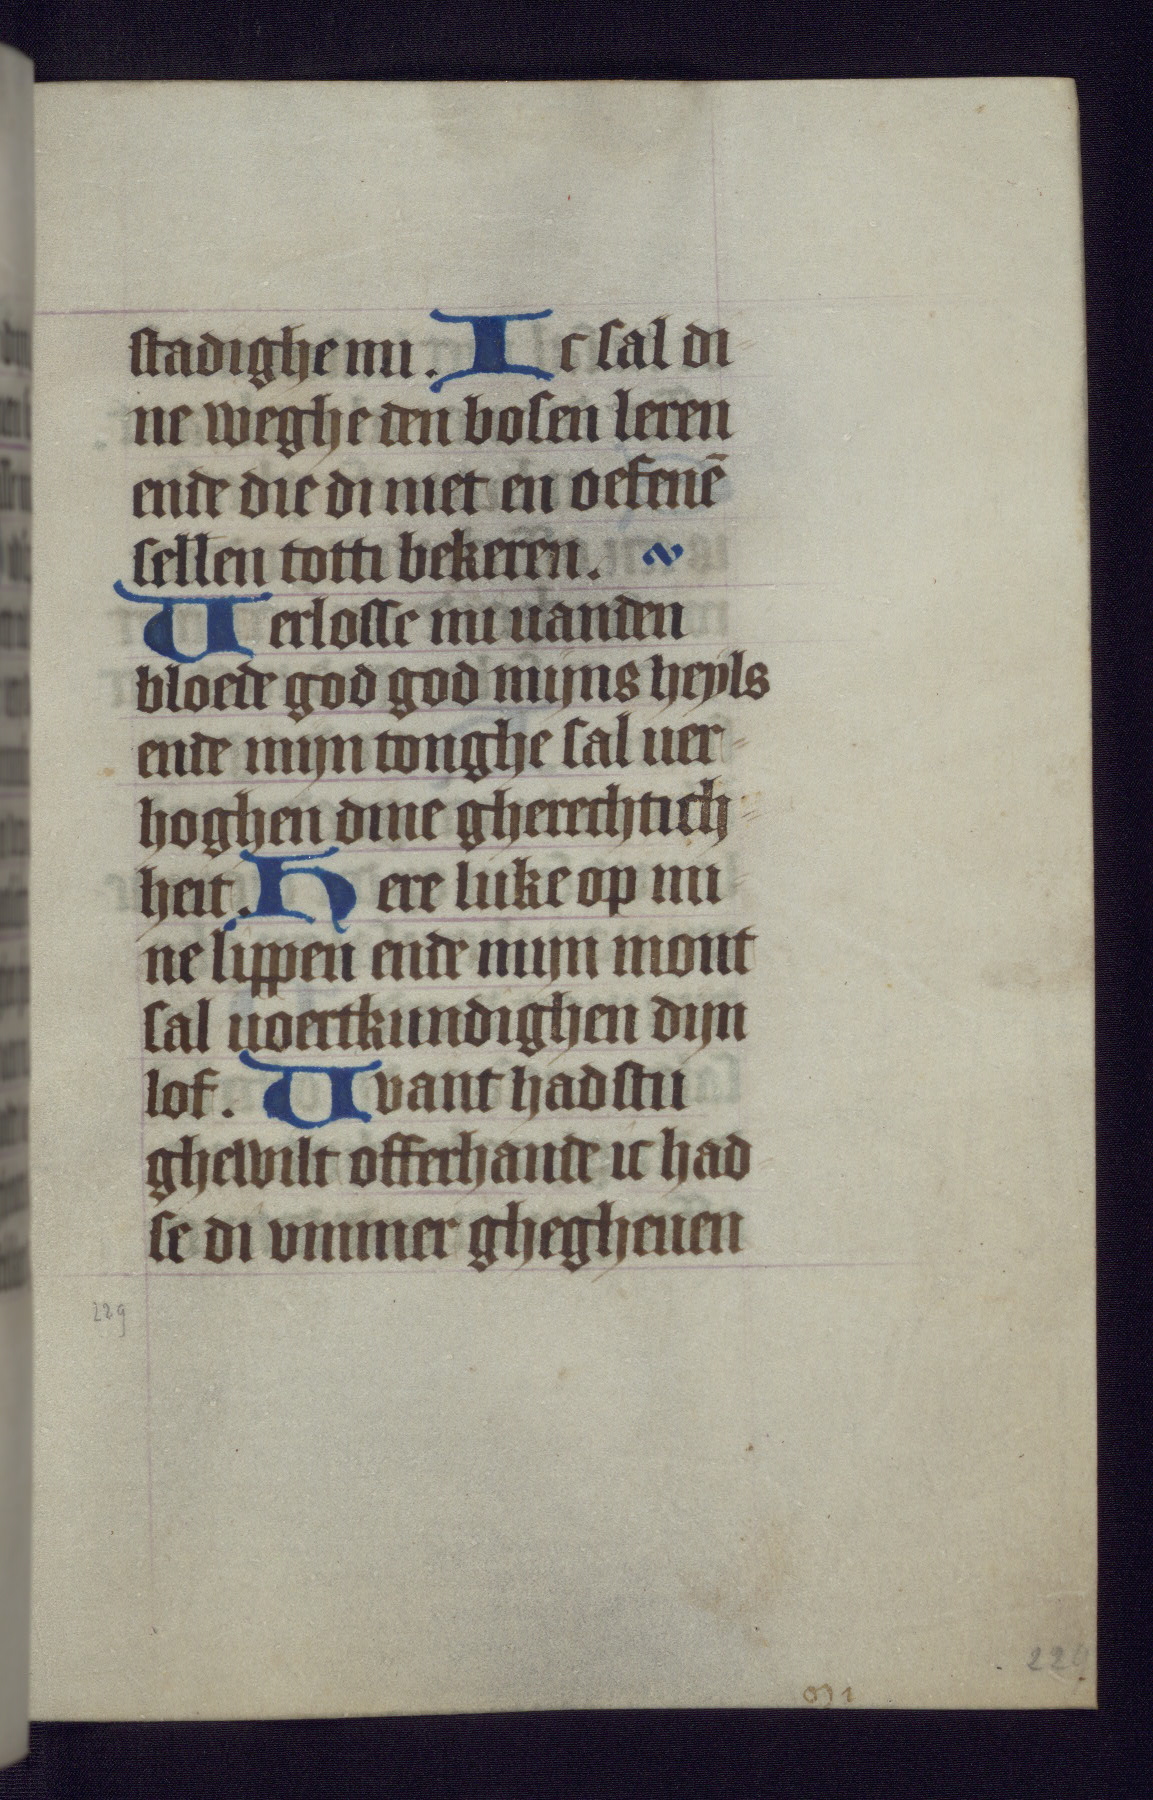 stadighe mi. Ic sal di
ne weghe den bosen leren
ende die di niet en oefenē
sellen totti bekeren.
Uerlosse mi uanden
bloede god god mijns heyls
ende mijn tonghe sal uer
hoghen dine gherechtich
heit. Here luke op mi
ne lippen ende mijn mont
sal uoertkundighen dijn
lof. Uvant hadstu
ghewilt offerhande ic had
se di vmmer ghegheuen
229
229